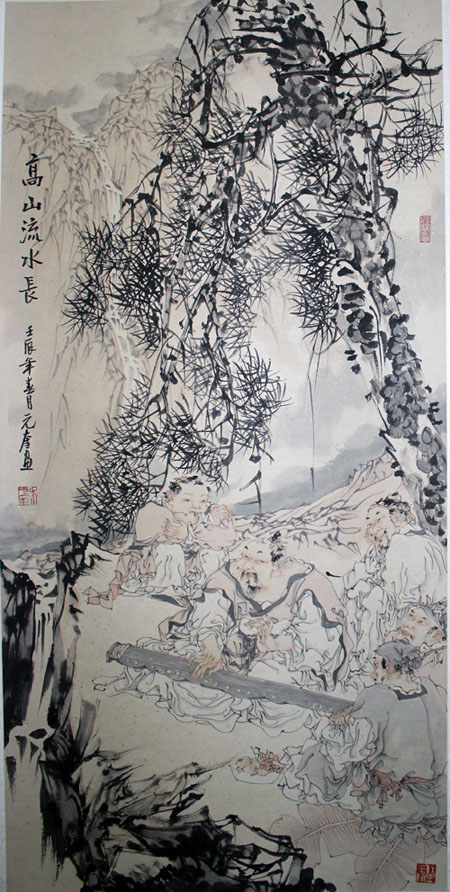 高山流水長
壬辰年春月元奎画